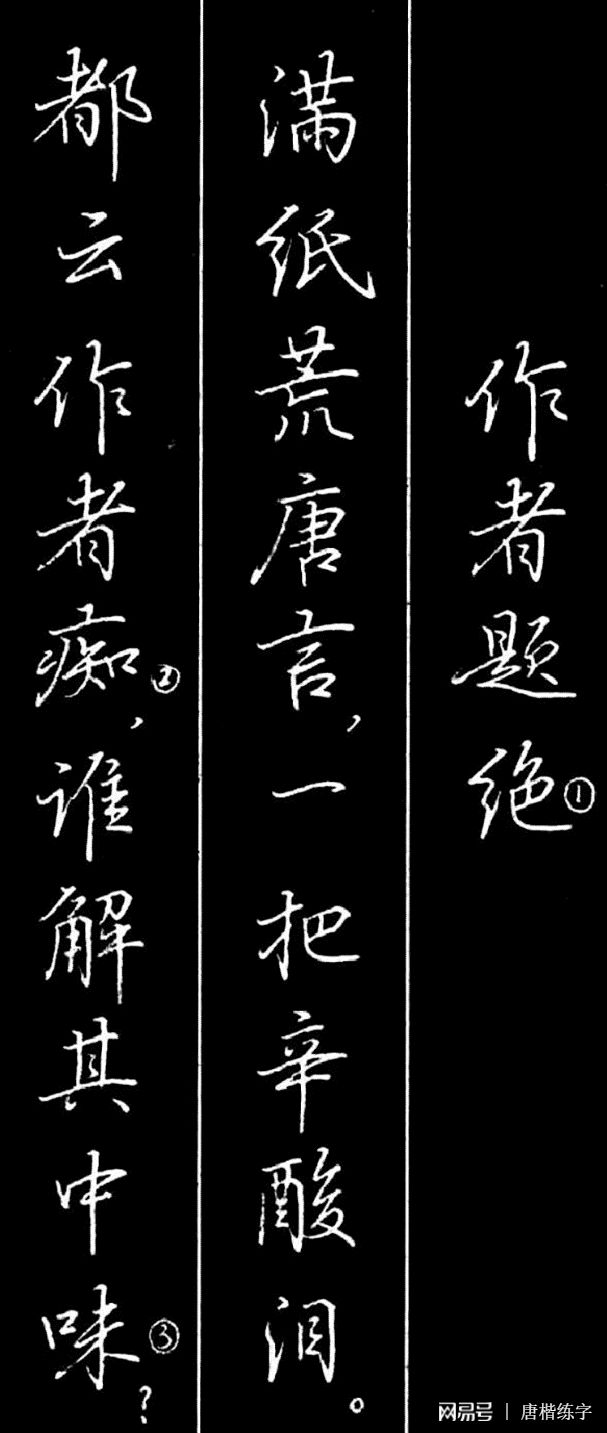 作者题绝①
满纸荒唐言，一把辛酸泪。
都云作者痴②，谁解其中味③？
网易号 | 唐楷练字